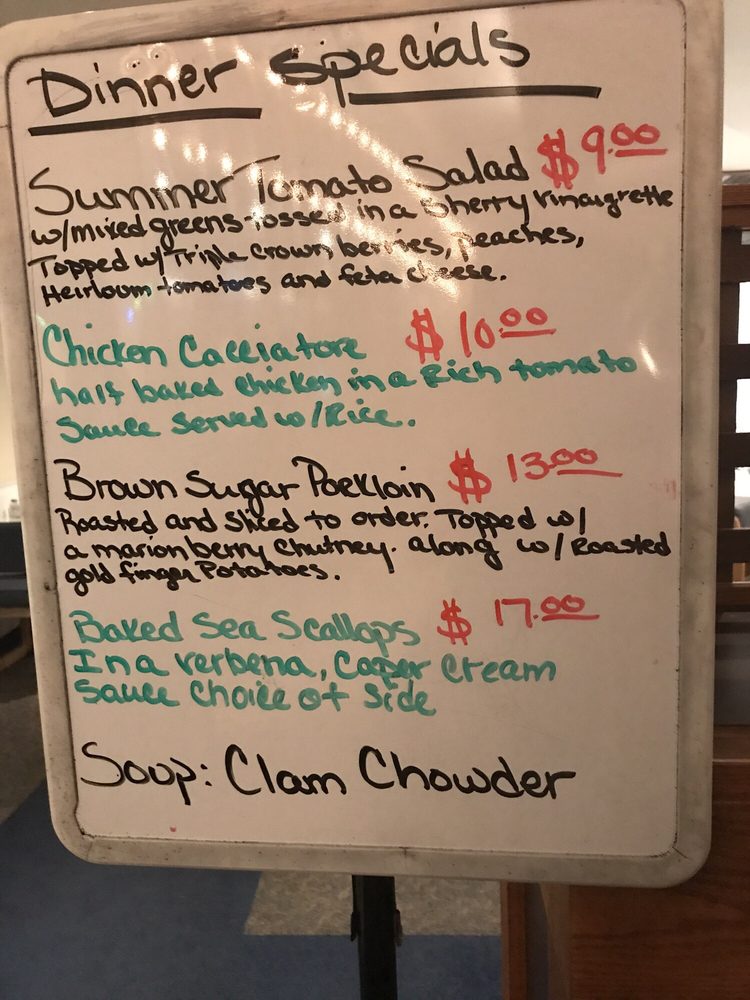 Dinner Specials
Summer Tomato Salad $9.00
w/mixed greens tossed in a Sherry vinaigrette
Topped w/Triple Crown berries, peaches,
Heirloum tomatoes and feta cheese.
Chicken Cacciatore $10.00
half baked chicken in a Rich tomato
Sauce served w/Rice.
Brown Sugar Porkloin $13.00
Roasted and Sliced to order. Topped w/
a marion berry Chutney. along w/ Roasted
gold finger Potatoes.
Baked Sea Scallops $17.00
In a verbena, Caper Cream
Sauce Choice of Side
Soup: Clam Chowder